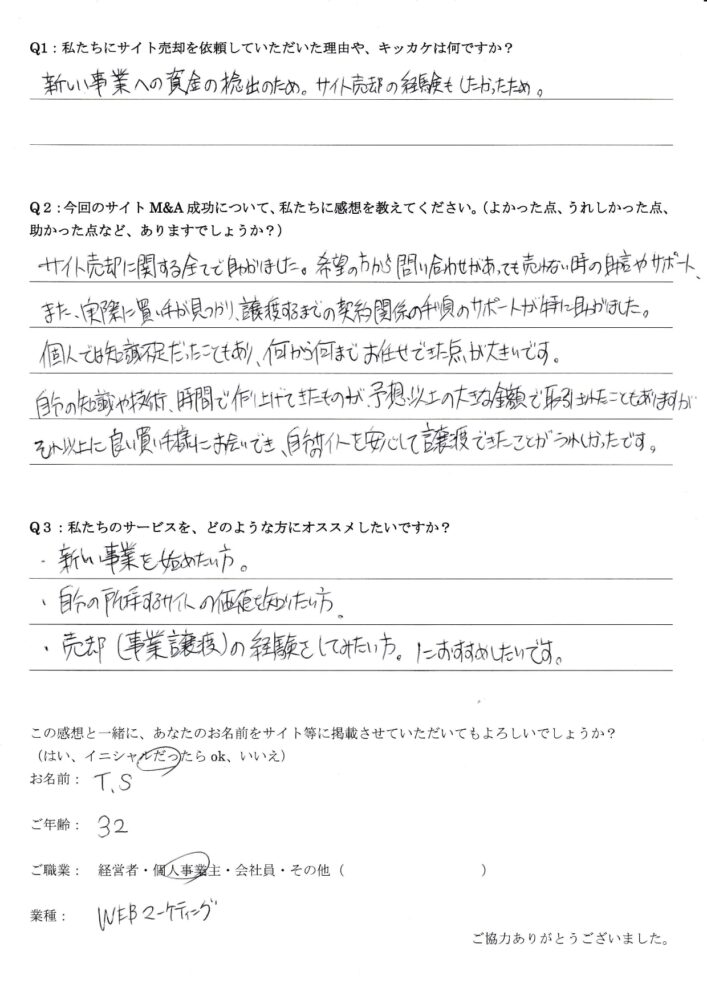 Q1：私たちにサイト売却を依頼していただいた理由や、キッカケは何ですか？
新しい事業への資金の捻出のため。サイト売却の経験もしたかったため。
Q２：今回のサイト M&A 成功について、私たちに感想を教えてください。（よかった点、うれしかった点、
助かった点など、ありますでしょうか？）
サイト売却に関する全てで助かりました。希望の方から問い合わせがあっても売れない時の助言やサポート、
また、実際に買い手が見つかり、譲渡するまでの契約関係の手順のサポートが特に助かりました。
個人では知識不足だったこともあり、何から何までお任せできた点が大きいです。
自分の知識や技術、時間で作り上げてきたものが、予想以上の大きな金額で取引されたこともありますが
それ以上に良い買い手様にお会いでき、自分のサイトを安心して譲渡できたことがうれしかったです。
Q３：私たちのサービスを、どのような方にオススメしたいですか？
・新しい事業を始めたい方。
・自分の所持するサイトの価値を知りたい方。
・売却（事業譲渡）の経験をしてみたい方。におすすめしたいです。
この感想と一緒に、あなたのお名前をサイト等に掲載させていただいてもよろしいでしょうか？
（はい、イニシャルだったら ok、いいえ）
お名前： T.S
ご年齢： 32
ご職業： 経営者・個人事業主・会社員・その他（ ）
業種： WEBマーケティング
ご協力ありがとうございました。